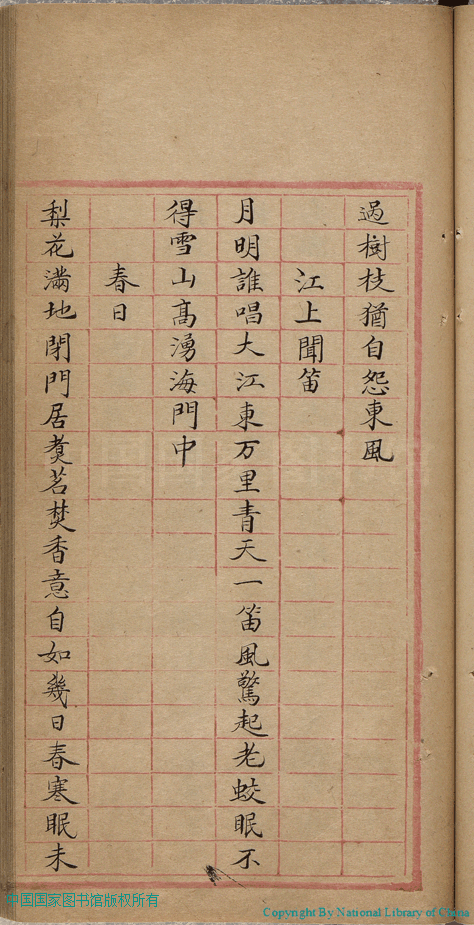 過樹枝猶自怨東風
江上聞笛
月明誰唱大江東万里青天一笛風驚起老蛟眠不
得雪山髙湧海門中
春日
梨花滿地閉門居煑茗焚香意自如幾日春寒眠未
中国国家图书馆版权所有
Copyright By National Library of China